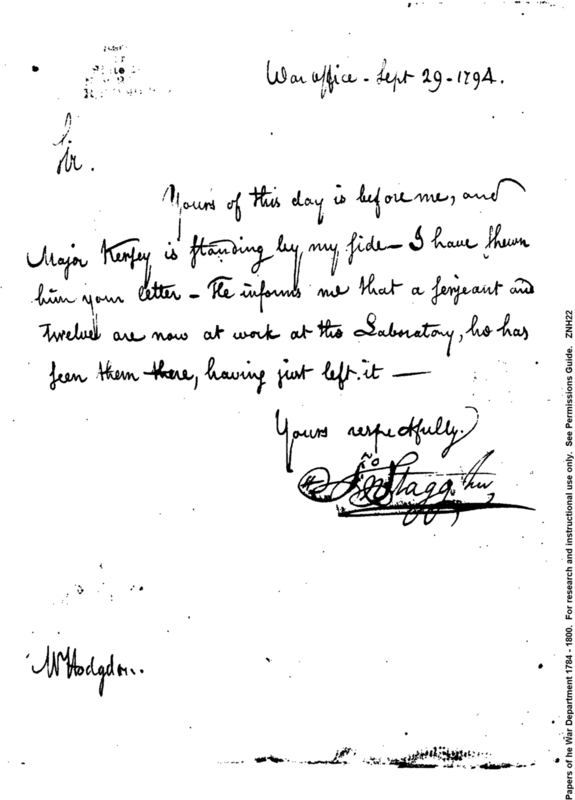 War office - Sept 29 - 1794.
Sir.
Yours of this day is before me, and
Major Kersey is standing by my side - I have shewn
him your letter - He informs me that a serjeant and
twelve are now at work at the Laboratory, he has
seen them there, having just left it —
Yours respectfully
Jno Stagg Junr
Mr Hodgdon..
Papers of he War Department 1784 - 1800. For research and instructional use only. See Permissions Guide. ZNH22